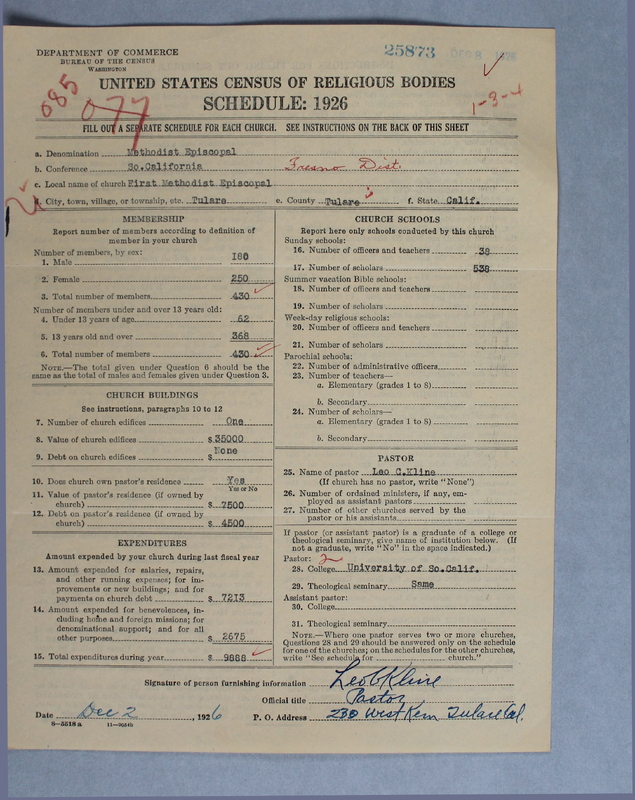 DEPARTMENT OF COMMERCE
BUREAU OF THE CENSUS
WASHINGTON
25873 DEC 8 1926
UNITED STATES CENSUS OF RELIGIOUS BODIES
SCHEDULE: 1926
085
077
1-3-4
FILL OUT A SEPARATE SCHEDULE FOR EACH CHURCH. SEE INSTRUCTIONS ON THE BACK OF THIS SHEET
a. Denomination Methodist Episcopal
b. Conference So.California Fresno Dist.
c. Local name of church First Methodist Episcopal
d. City, town, village, or township, etc. Tulare e. County Tulare f. State Calif.
MEMBERSHIP
Report number of members according to definition of
member in your church
Number of members, by sex:
1. Male 180
2. Female 250
3. Total number of members 430
Number of members under and over 13 years old:
4. Under 13 years of age 62
5. 13 years old and over 368
6. Total number of members 430
NOTE.—The total given under Question 6 should be the
same as the total of males and females given under Question 3.
CHURCH BUILDINGS
See instructions, paragraphs 10 to 12
7. Number of church edifices One
8. Value of church edifices $35000
9. Debt on church edifices $ None
10. Does church own pastor's residence? Yes
Yes or No
11. Value of pastor's residence (if owned by
church) $ 7500
12. Debt on pastor's residence (if owned by
church) $ 4500
EXPENDITURES
Amount expended by your church during last fiscal year
13. Amount expended for salaries, repairs,
and other running expenses; for im-
provements or new buildings; and for
payments on church debt $ 7213
14. Amount expended for benevolences, in-
cluding home and foreign missions; for
denominational support; and for all
other purposes $ 2675
15. Total expenditures during year $ 9888
CHURCH SCHOOLS
Report here only schools conducted by this church
Sunday schools:
16. Number of officers and teachers 38
17. Number of scholars 538
Summer vacation Bible schools:
18. Number of officers and teachers
19. Number of scholars
Week-day religious schools:
20. Number of officers and teachers
21. Number of scholars
Parochial schools:
22. Number of administrative officers
23. Number of teachers—
a. Elementary (grades 1 to 8)
b. Secondary
24. Number of scholars—
a. Elementary (grades 1 to 8)
b. Secondary
PASTOR
25. Name of pastor Leo C.Kline
(If church has no pastor, write "None")
26. Number of ordained ministers, if any, em-
ployed as assistant pastors
27. Number of other churches served by the
pastor or his assistants
If pastor (or assistant pastor) is a graduate of a college or
theological seminary, give name of institution below. (If
not a graduate, write "No" in the space indicated.)
Pastor: 2
28. College University of So.Calif.
29. Theological seminary Same
Assistant pastor:
30. College
31. Theological seminary
NOTE.—Where one pastor serves two or more churches,
Questions 28 and 29 should be answered only on the schedule
for one of the churches; on the schedules for the other churches,
write "See schedule for church."
Signature of person furnishing information Leo C Kline
Official title Pastor
Date Dec 2, 1926 P. O. Address 230 West Kern Tulare Cal.
8—5518 a